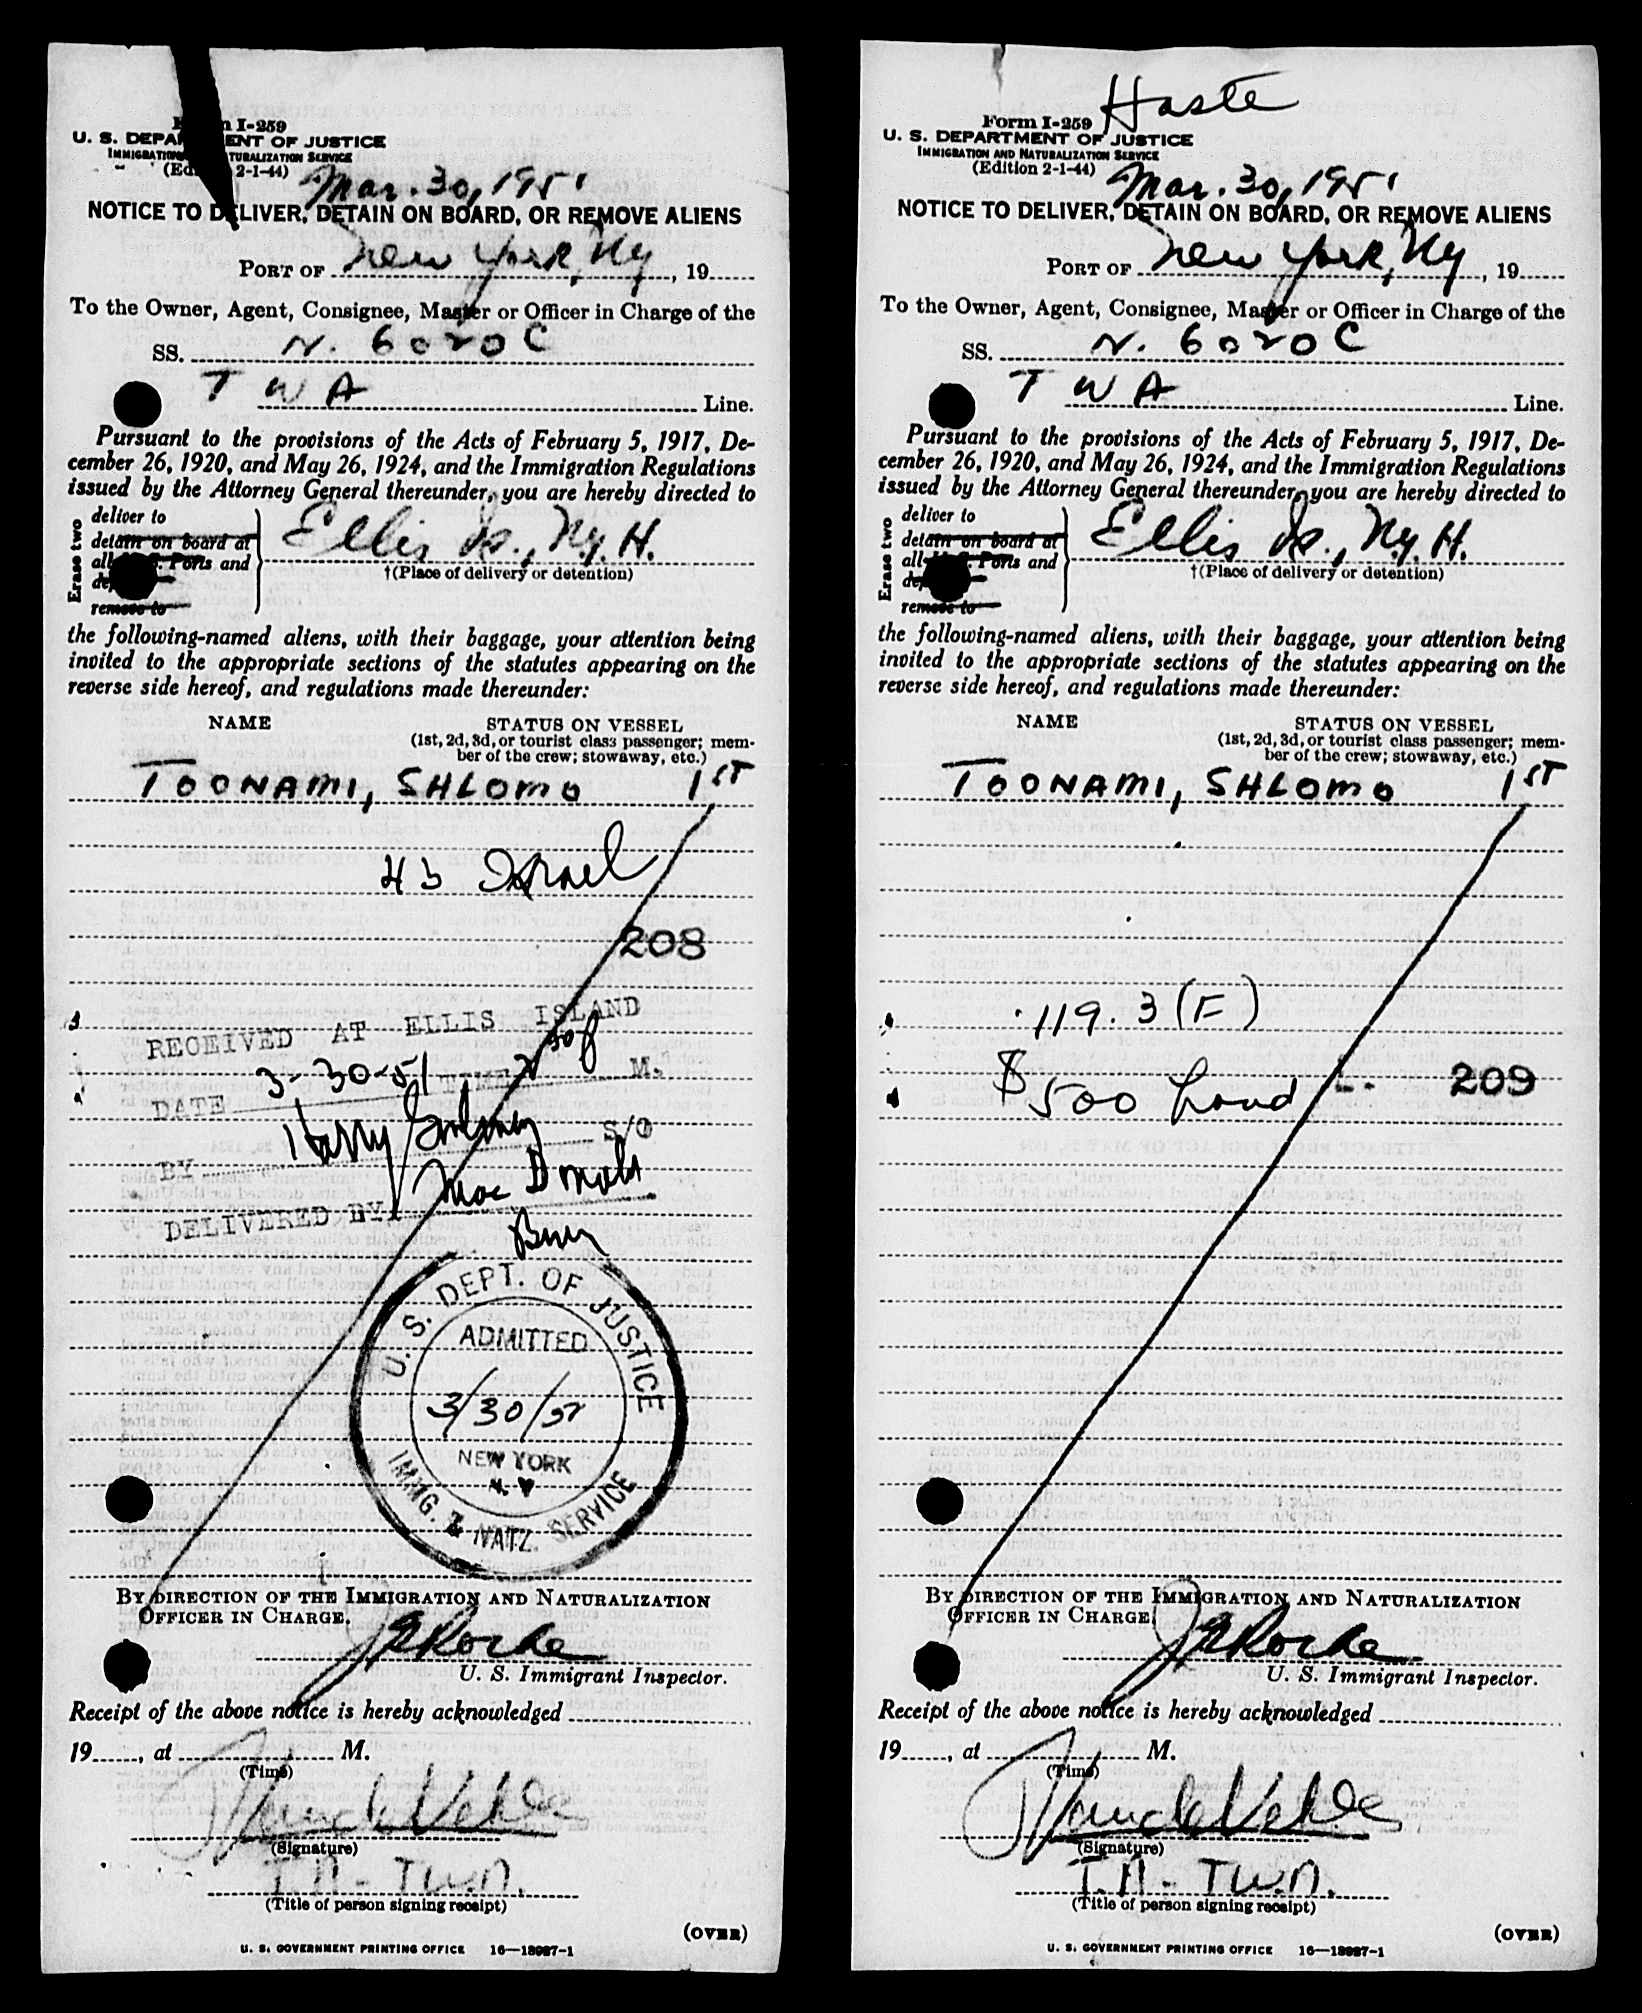 Form I-259
U. S. DEPARTMENT OF JUSTICE
IMMIGRATION NATURALIZATION SERVICE
(Edition 2-1-44)
Mar. 30, 1951
NOTICE TO DELIVER, DETAIN ON BOARD, OR REMOVE ALIENS
PORT OF New York, Ny, 19
To the Owner, Agent, Consignee, Master or Officer in Charge of the
SS. N. 6020C
TWA Line.
Pursuant to the provisions of the Acts of February 5, 1917, De-
cember 26, 1920, and May 26, 1924, and the Immigration Regulations
issued by the Attorney General thereunder, you are hereby directed to
Erase two
deliver to
detain on board at
all U. S. Ports and
remove to
Ellis Is., Ny. H.
†(Place of delivery or detention)
the following-named aliens, with their baggage, your attention being
invited to the appropriate sections of the statutes appearing on the
reverse side hereof, and regulations made thereunder:
NAME STATUS ON VESSEL
(1st, 2d, 3d, or tourist class passenger; mem-
ber of the crew; stowaway, etc.)
TOONAMI, SHLOMO 1ST
43 Israel
208
RECEIVED AT ELLIS ISLAND
DATE 3-30-51 TIME 230 P M.
BY Harry S/O
DELIVERED BY Mac Donald
U. S. DEPT. OF JUSTICE
ADMITTED
3/30/51
NEW YORK
N. Y
IMMIG. & NATZ. SERVICE
BY DIRECTION OF THE IMMIGRATION AND NATURALIZATION
OFFICER IN CHARGE.
U. S. Immigrant Inspector.
Receipt of the above notice is hereby acknowledged
19, at M.
(Time)
(Signature)
T.A - T.W.A.
(Title of person signing receipt)
(OVER)
U. S. GOVERNMENT PRINTING OFFICE 16—13087-1
Haste
Form I-259
U. S. DEPARTMENT OF JUSTICE
IMMIGRATION AND NATURALIZATION SERVICE
(Edition 2-1-44)
Mar. 30, 1951
NOTICE TO DELIVER, DETAIN ON BOARD, OR REMOVE ALIENS
PORT OF New York, Ny, 19
To the Owner, Agent, Consignee, Master or Officer in Charge of the
SS. N. 6020C
TWA Line.
Pursuant to the provisions of the Acts of February 5, 1917, De-
cember 26, 1920, and May 26, 1924, and the Immigration Regulations
issued by the Attorney General thereunder, you are hereby directed to
Erase two
deliver to
detain on board at
all U. S. Ports and
remove to
Ellis Is., Ny. H.
†(Place of delivery or detention)
the following-named aliens, with their baggage, your attention being
invited to the appropriate sections of the statutes appearing on the
reverse side hereof, and regulations made thereunder:
NAME STATUS ON VESSEL
(1st, 2d, 3d, or tourist class passenger; mem-
ber of the crew; stowaway, etc.)
TOONAMI, SHLOMO 1ST
119.3 (F)
$500 bond
209
BY DIRECTION OF THE IMMIGRATION AND NATURALIZATION
OFFICER IN CHARGE.
U. S. Immigrant Inspector.
Receipt of the above notice is hereby acknowledged
19, at M.
(Time)
(Signature)
T.A - T.W.A.
(Title of person signing receipt)
(OVER)
U. S. GOVERNMENT PRINTING OFFICE 16—13087-1